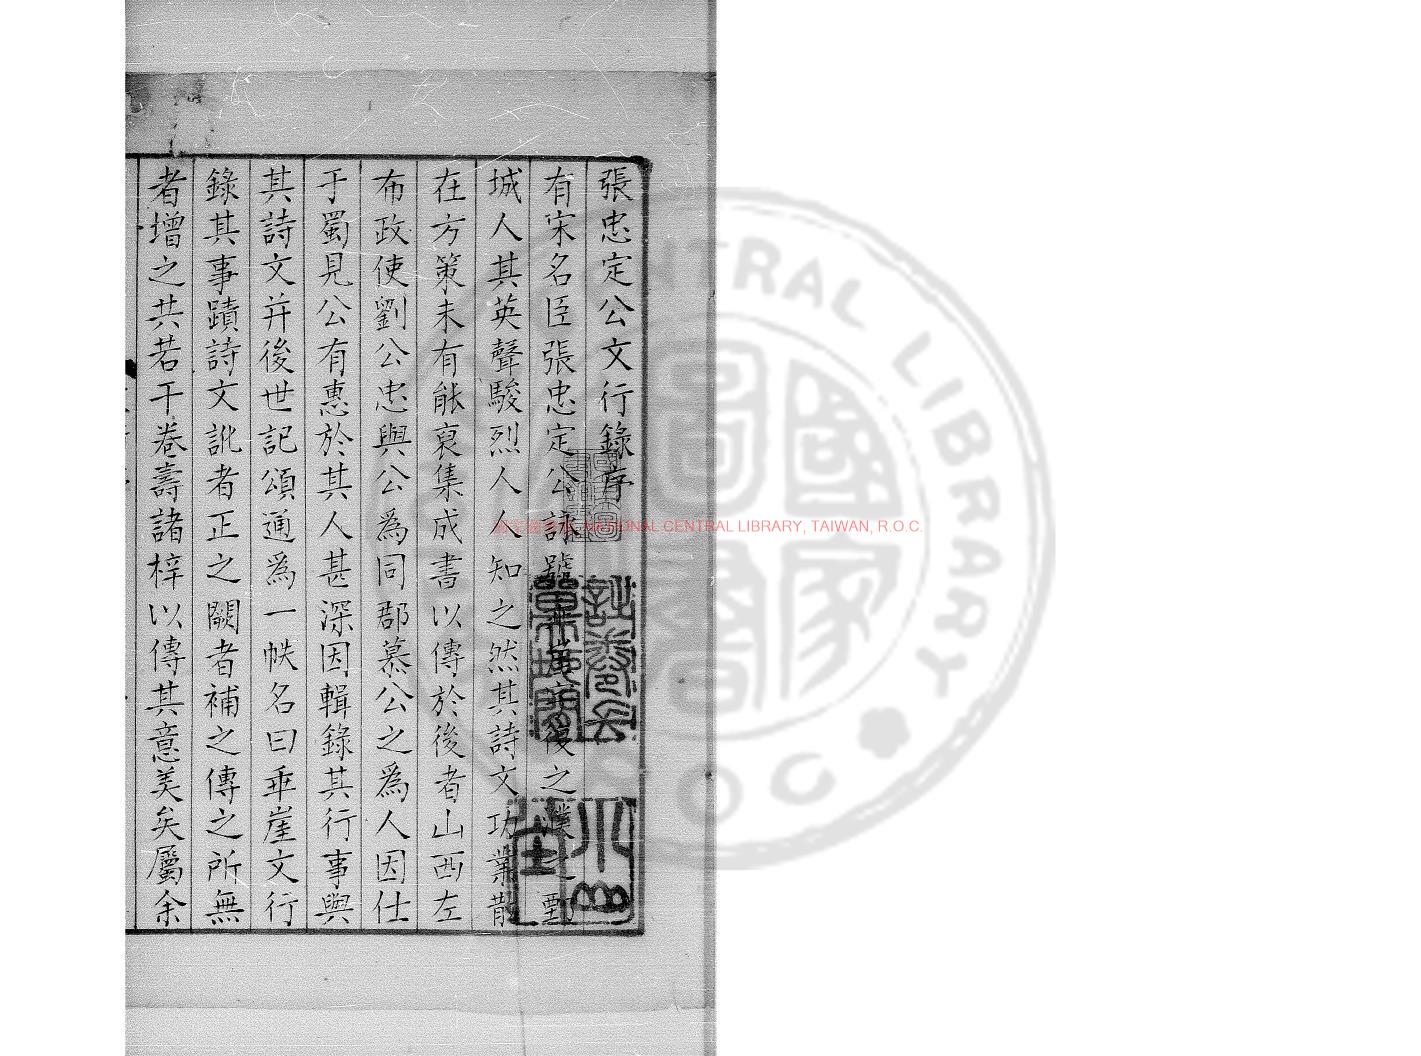 張忠定公文行錄序
有宋名臣張忠定公詠號乖崖後之濮之鄄
城人其英聲駿烈人人知之然其詩文功業散
在方策未有能裒集成書以傳於後者山西左
布政使劉公忠與公為同郡慕公之為人因仕
于蜀見公有惠於其人甚深因輯錄其行事與
其詩文并後世記頌通為一帙名曰乖崖文行
錄其事蹟詩文訛者正之闕者補之傳之所無
者增之共若干卷壽諸梓以傳其意美矣屬余
國家圖書館 NATIONAL CENTRAL LIBRARY, TAIWAN, R.O.C.
CENTRAL LIBRARY
R.O.C.
國家圖